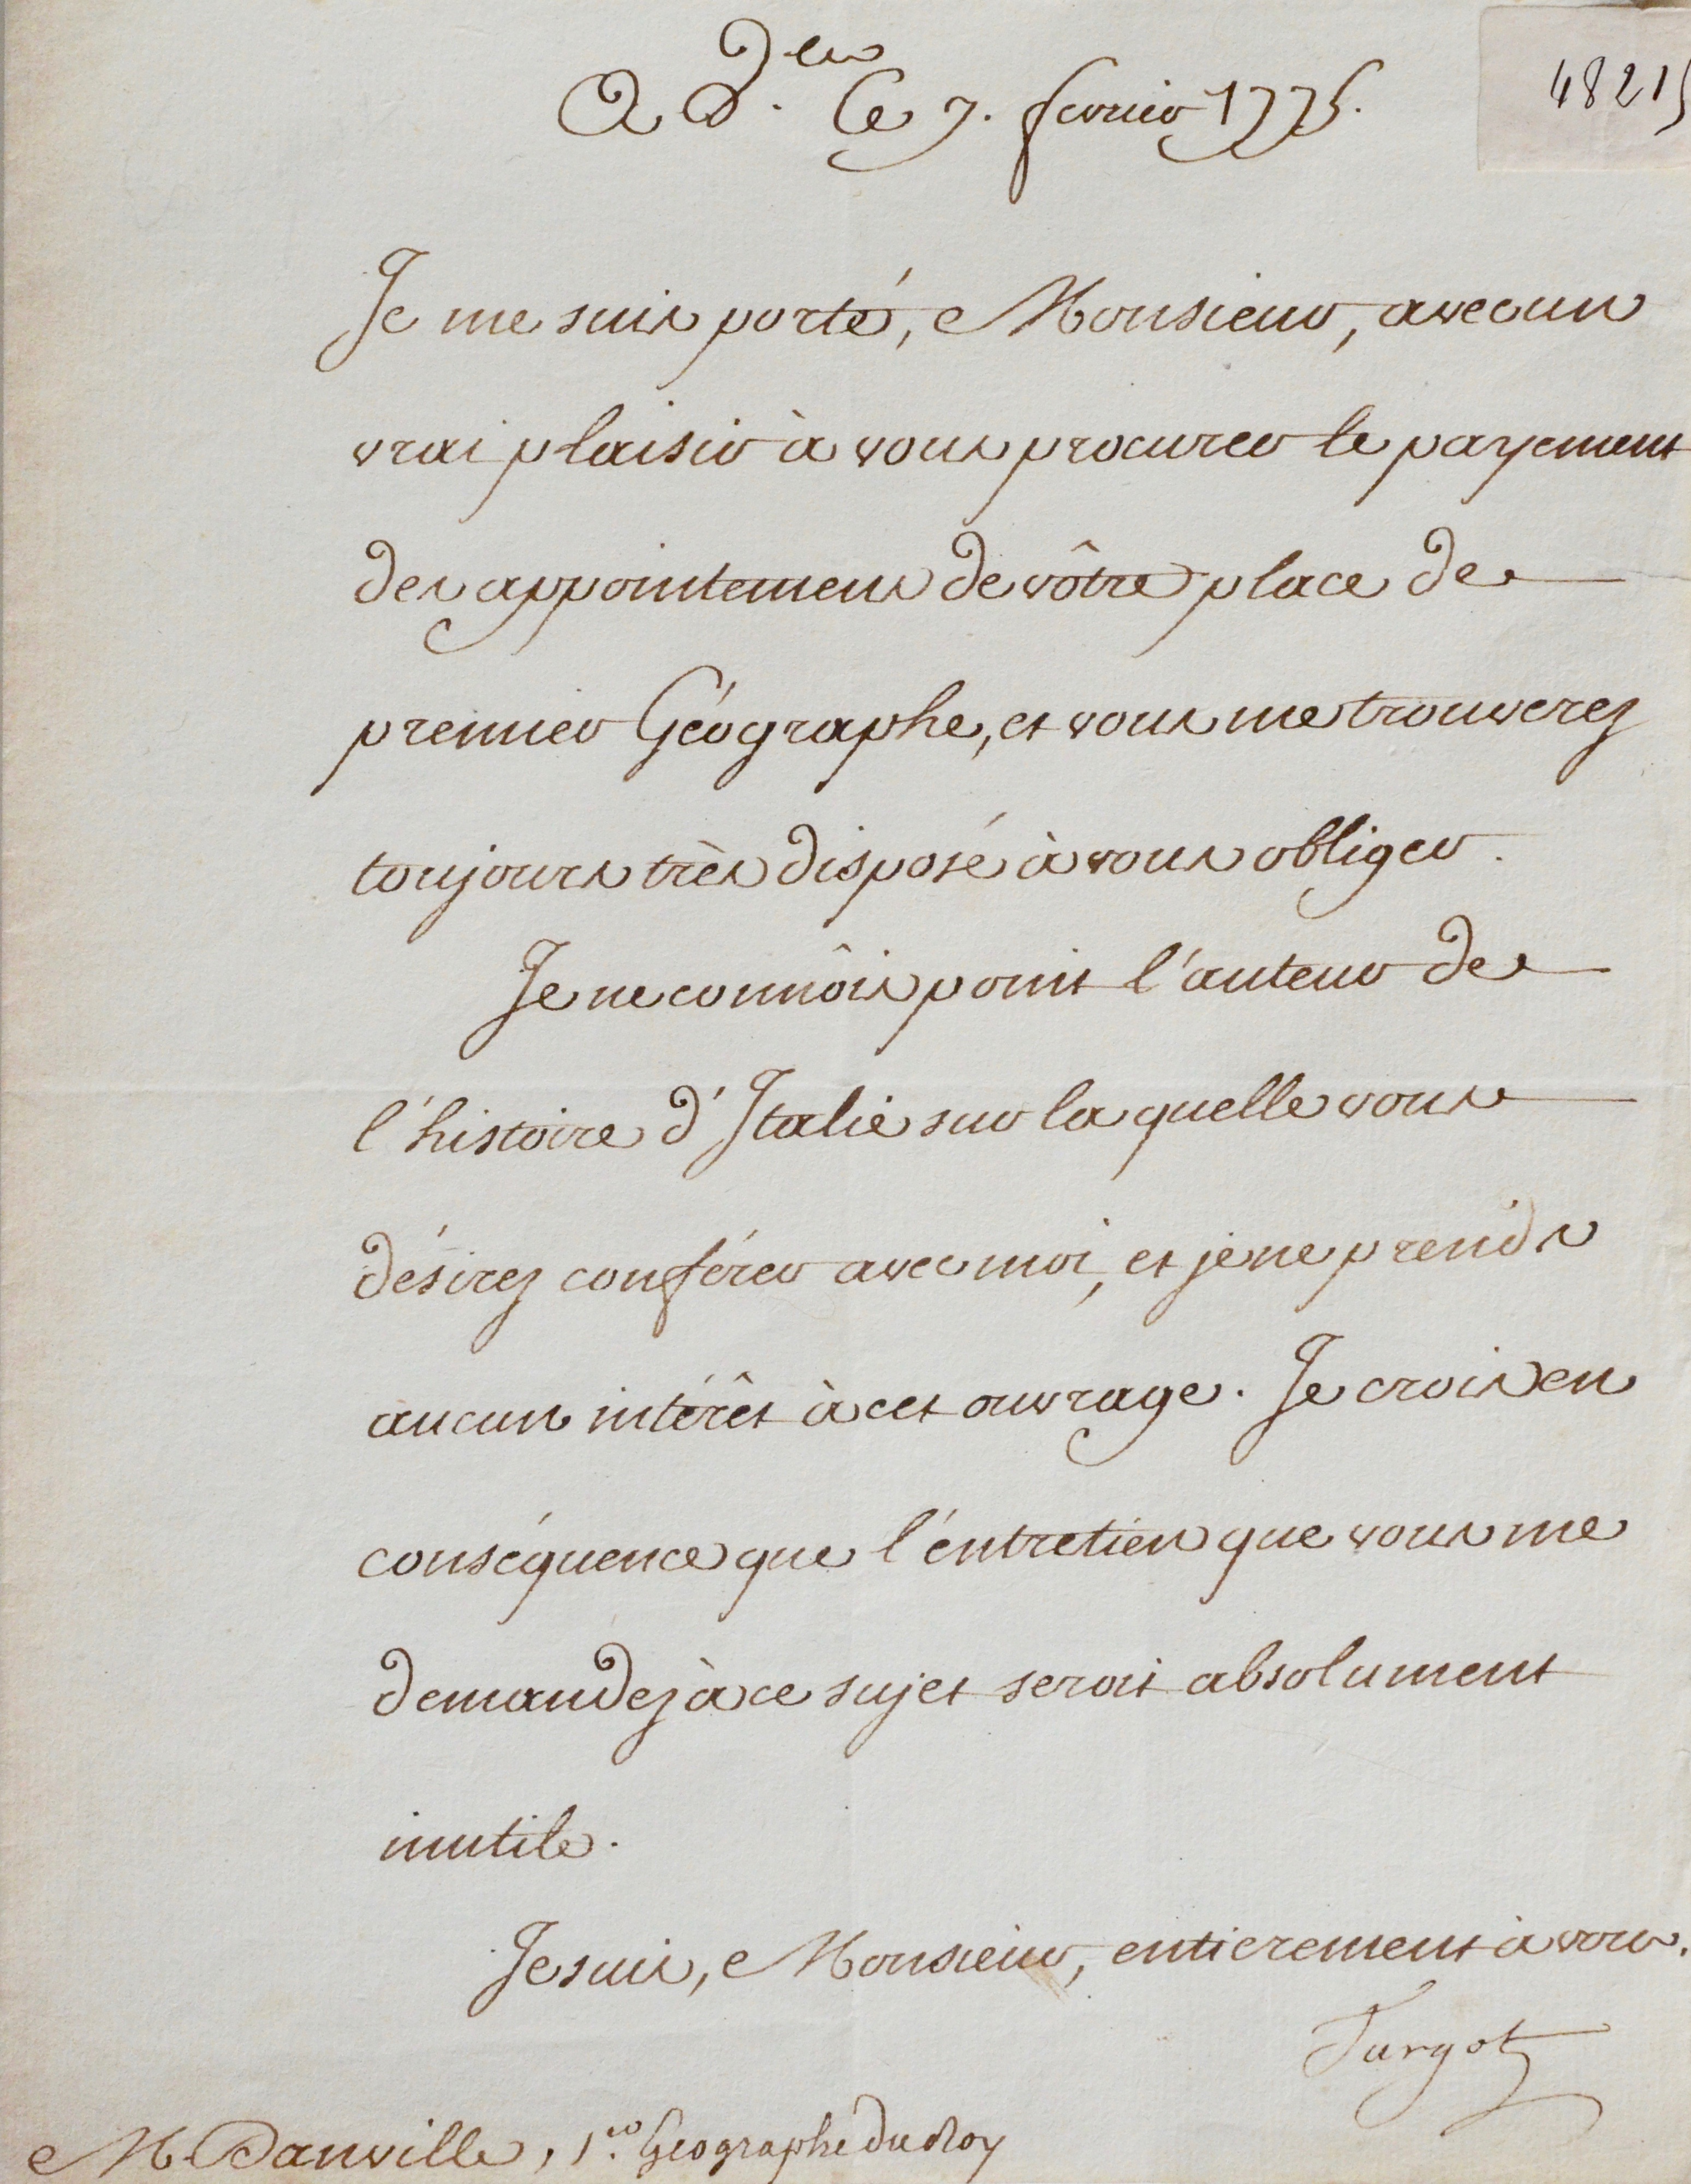 48215
Le 7. fevrier 1775.
Je me suis porté, Monsieur, avec un
vrai plaisir à vous procurer le payement
des appointemens de vôtre place de
premier Géographe, et vous me trouverez
toujours très disposé à vous obliger.
Je ne connôis point l'auteur de
l'histoire d'Italie sur la quelle vous
désirez conférer avec moi, et je ne prends
aucun intérêt à cet ouvrage. Je crois en
conséquence que l'entretien que vous me
demandez à ce sujet seroit absolument
inutile.
Je suis, Monsieur, entierement à vous.
Turgot
M. Danville, 1.er Géographe du Roy